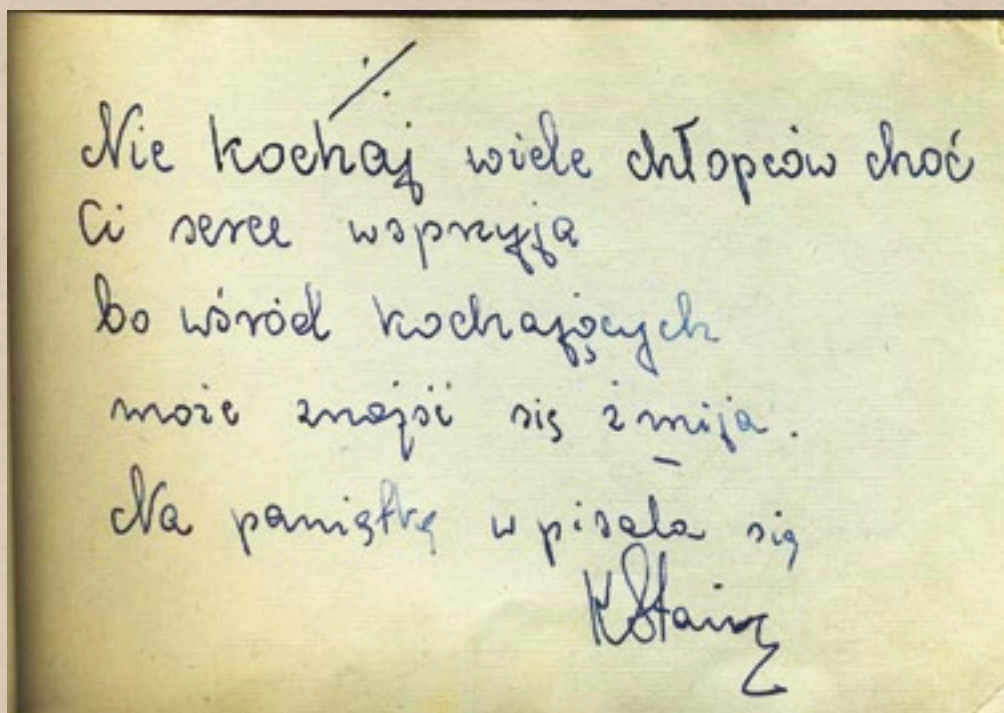 Nie kochaj wiele chłopców choć
Ci serce wsprzyja
bo wśród kochających
może znajść się żmija.
Na pamiątkę wpisała się